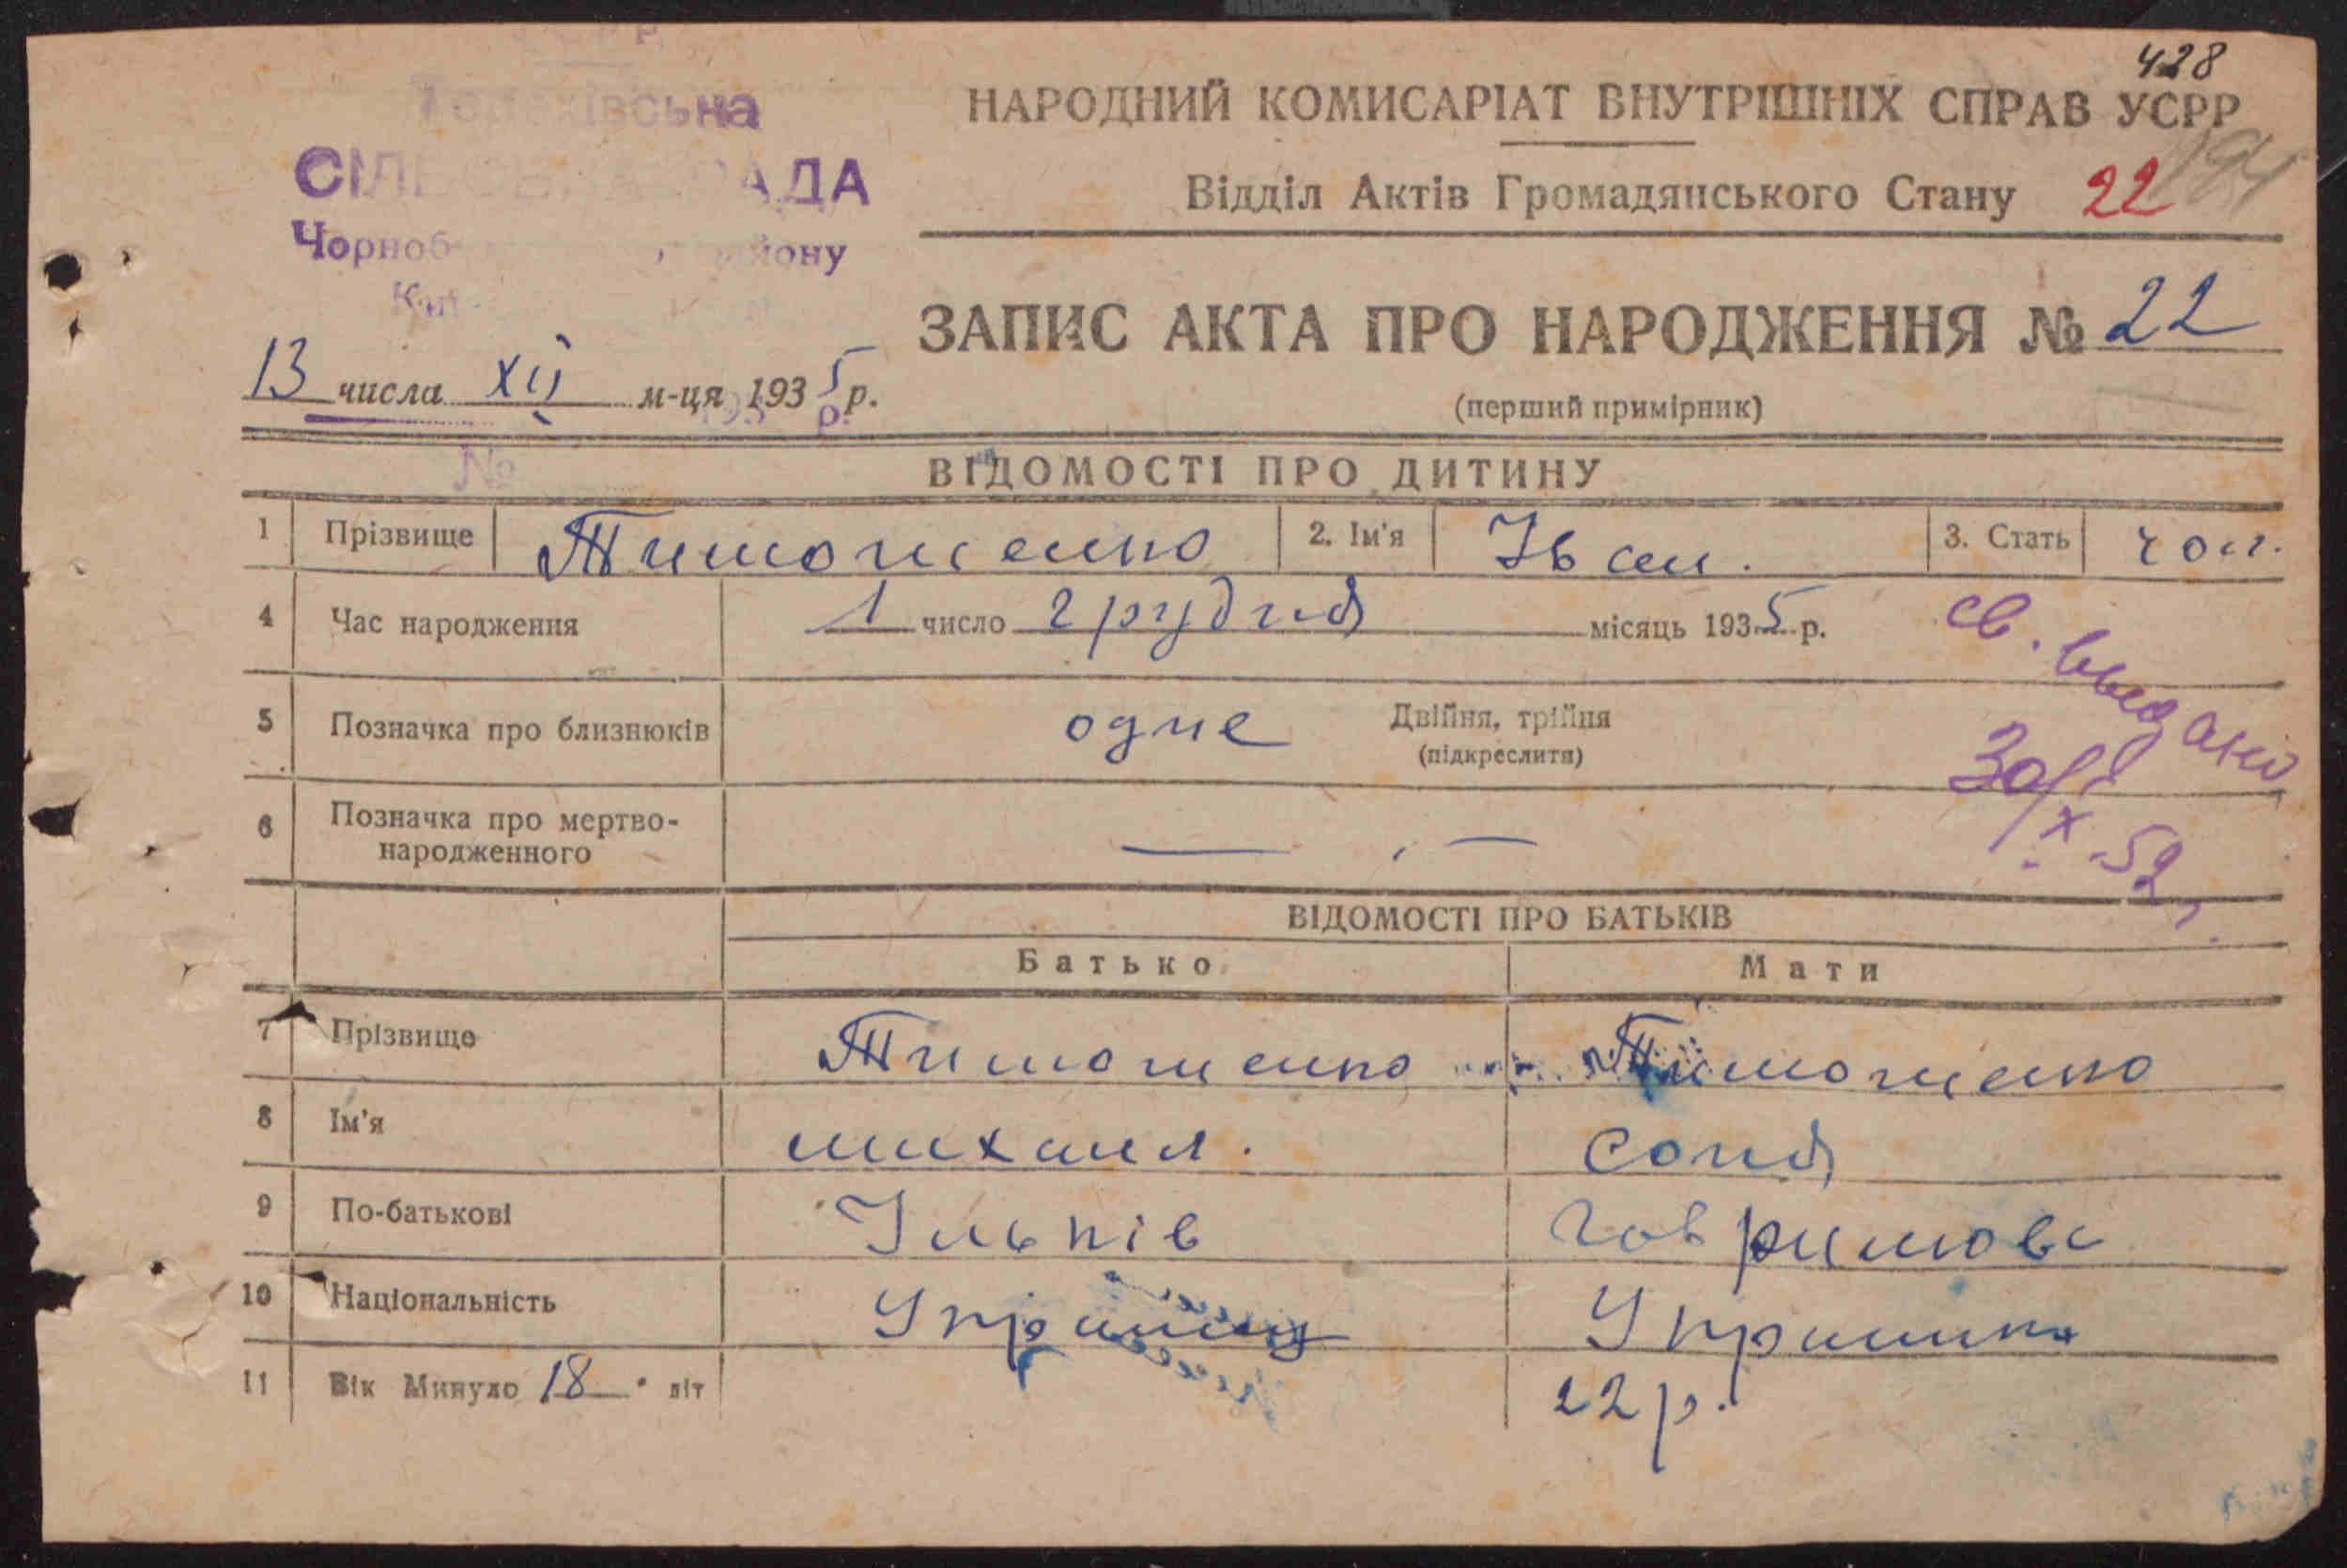 428
НАРОДНИЙ КОМИСАРІАТ ВНУТРІШНІХ СПРАВ УСРР
Відділ Актів Громадянського Стану 22
СІЛЬСЬКА РАДА
ЗАПИС АКТА ПРО НАРОДЖЕННЯ № 22
13 числа XII м-ця 1935 р.
(перший примірник)
№
ВІДОМОСТІ ПРО ДИТИНУ
1 Прізвище Тимошенко 2. Ім'я Іван. 3. Стать чол.
4 Час народження 1 число грудня місяць 1935 р.
св. выдано
30/X 52 г.
5 Позначка про близнюків одне Двійня, трійня
(підкреслити)
6 Позначка про мертво-
народженного — . —
ВІДОМОСТІ ПРО БАТЬКІВ
Батько Мати
7 Прізвище Тимошенко Тимошенко
8 Ім'я михаил. Соня
9 По-батькові Ільків Говрилова
10 Національність Українец Українка
11 Вік Минуло 18 літ 22 р.